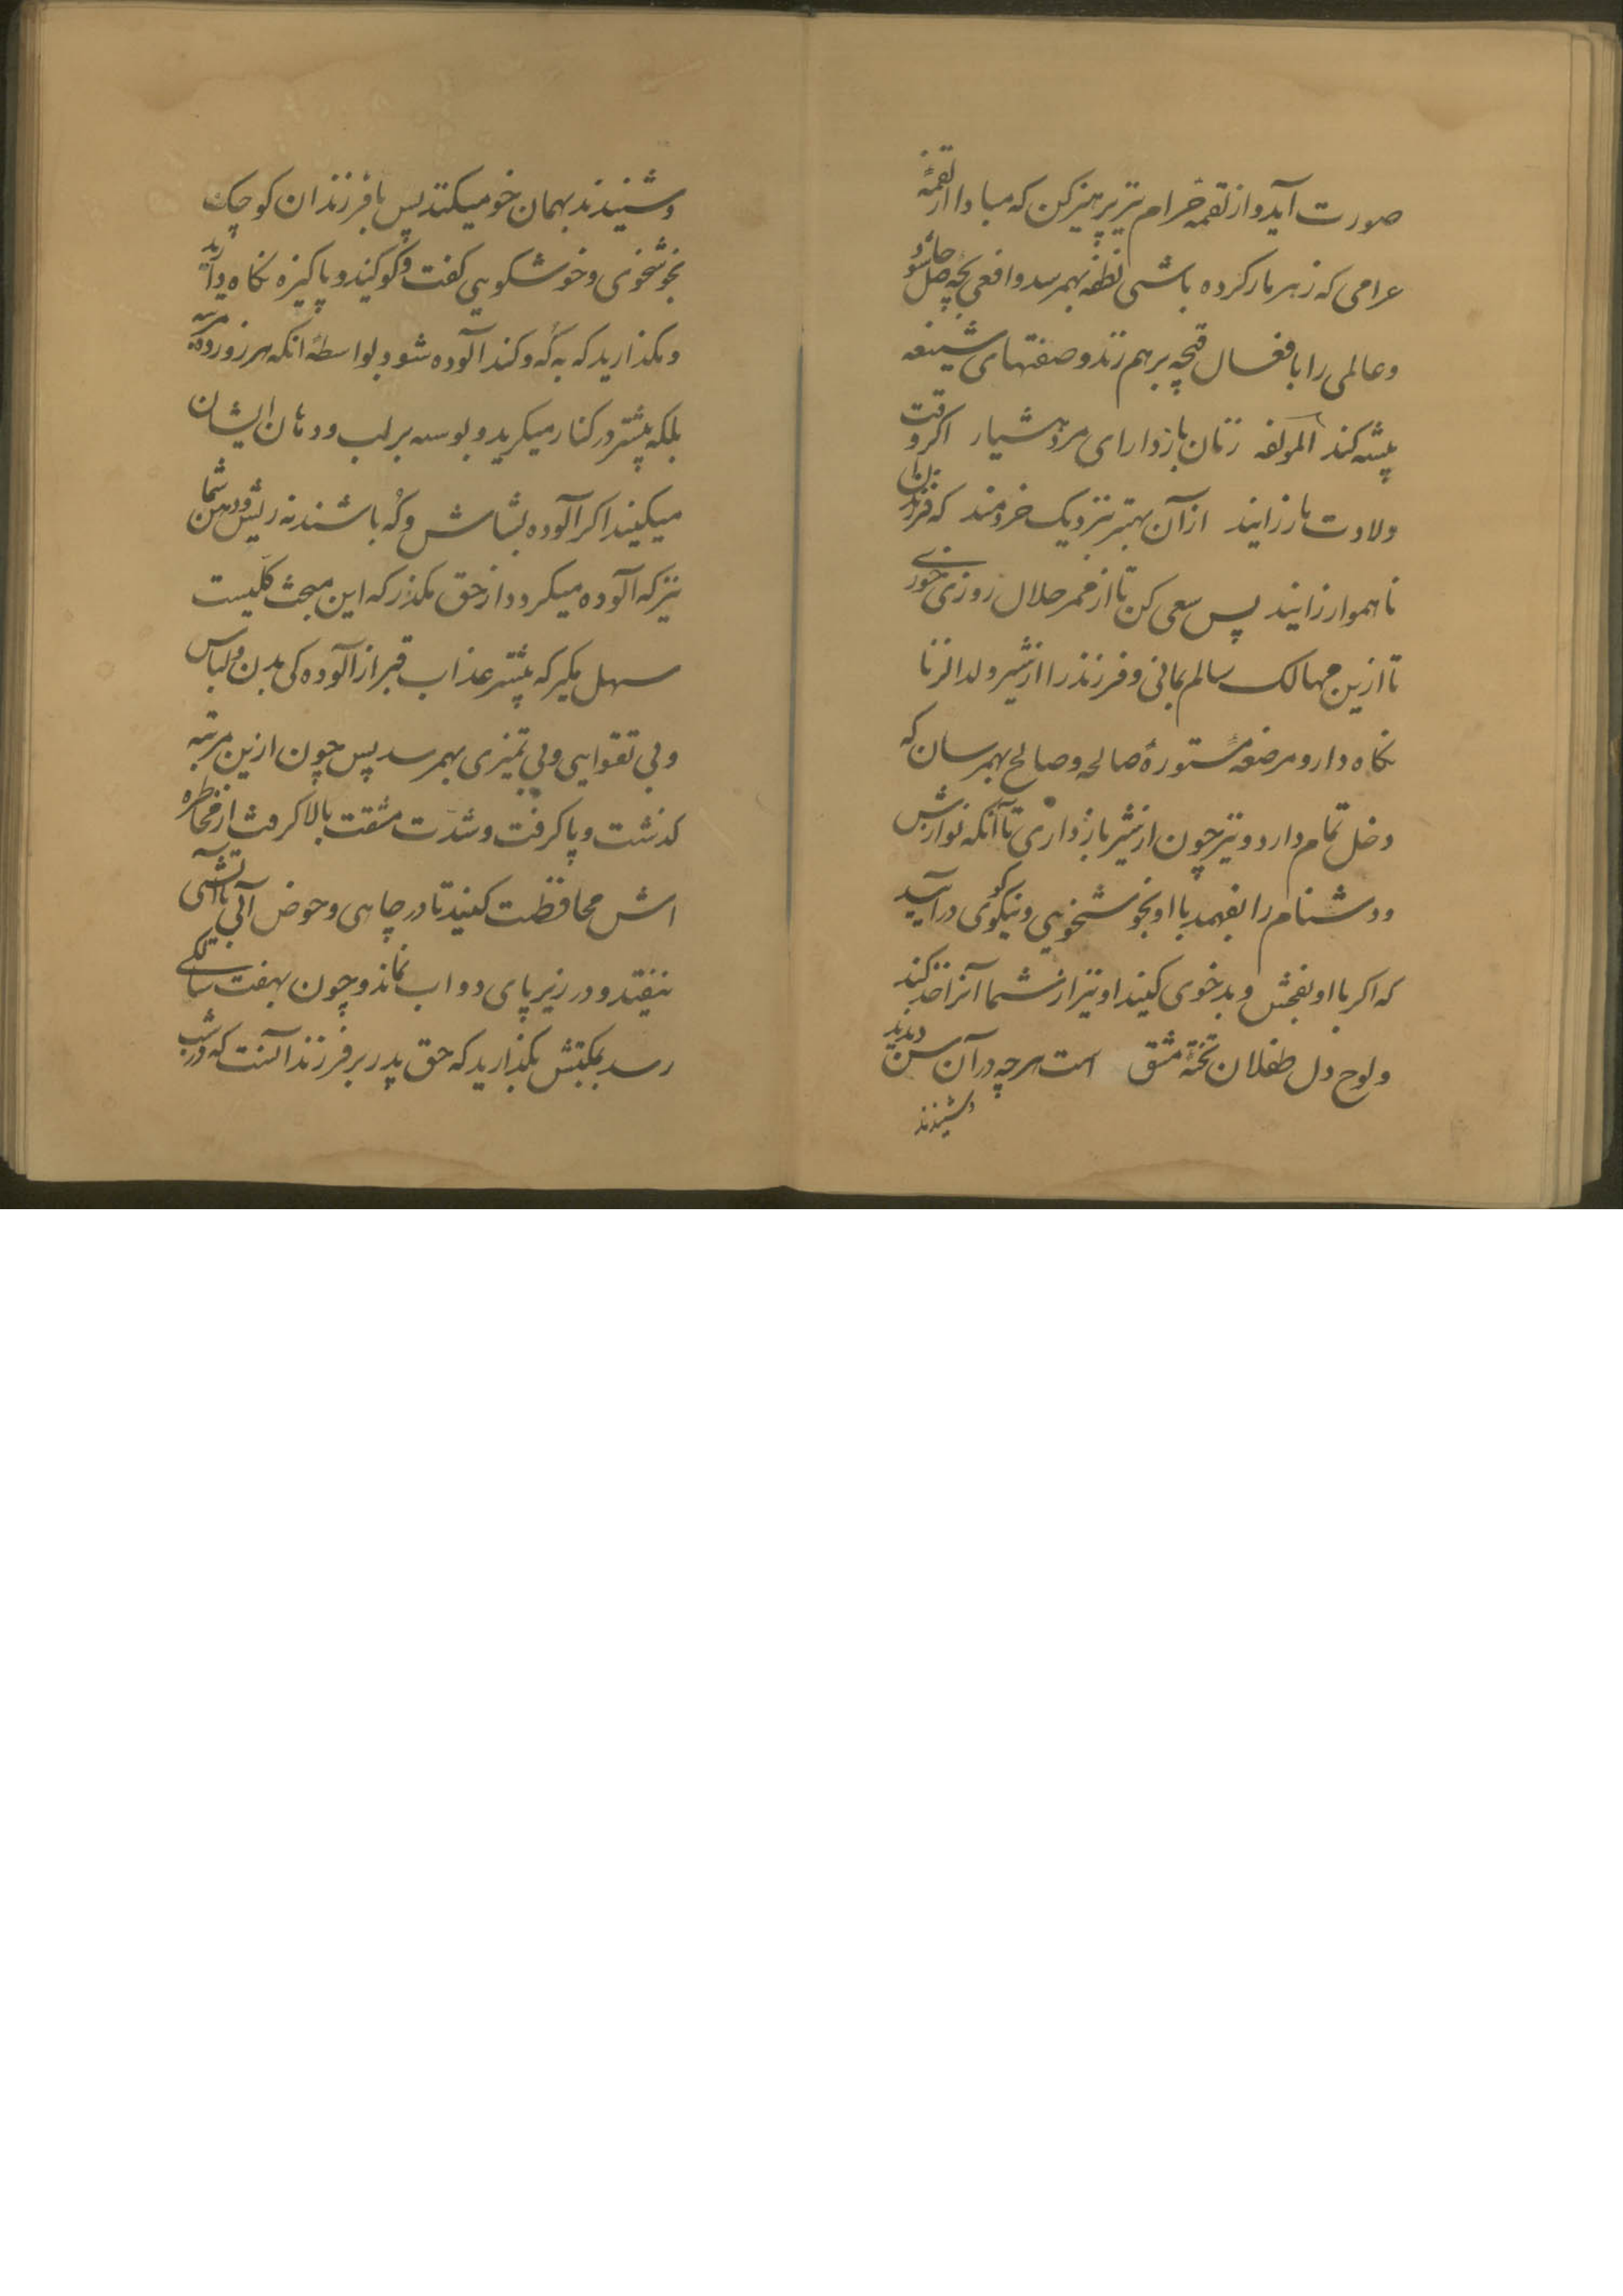 صورت آید و از لقمه حرام نیز پرهیز کن که مبادا از لقمهٔ
حرامی که زهر مار کرده باشی نطفه بهمرسد و افعی بچه حاصل شود
و عالمی را با فعال قبیحه برهم زند و صفتهای شنیعه
پیشه کند المولفه زنان باردار ای مرد هشیار اگر وقت
ولادت مار زایند از آن بهتر بنزدیک خردمند که فرزندان
ناهموار زایند پس سعی کن تا از ممر حلال روزی خوری
تا ازین مهالک سالم بمانی و فرزند را از شیر ولد الزنا
نگاه دار و مرضعهٔ مستورهٔ صالحه و صالح بهمرسان که
دخل تمام دارد و نیز چون از شیر بازداری تا آنکه نوازش
و دشنام را بفهمد با او بخوشخویی و نیکویی درآیید
که اگر با او بفحش و بدخوی کنید او نیز از شما آنرا اخذ کند
و لوح دل طفلان تختهٔ مشق است هرچه در آن سن دیدند
و شنیدند
و شنیدند بهمان خو میکنند پس با فرزندان کوچک
بخوشخوی و خوشکویی کفت و کو کنید و پاکیزه نگاه دارید
و مگذارید که به گه و کند آلوده شود بواسطهٔ آنکه هر روز ده مرتبه
بلکه بیشتر در کنار میگیرید و بوسه بر لب و دهان ایشان
میکنید اگر آلوده بشاش و گه باشند نه ریش و دهن شما
نیز گه آلوده میگردد از حق مگذر که این مبحث کلیست
سهل مگیر که بیشتر عذاب قبر از آلوده کی بدن و لباس
و بی تقوایی و بی تمیزی بهمرسد پس چون ازین مرتبه
گذشت و پا گرفت و شدت مشقت بالا گرفت از مخاطره
اش محافظت کنید تا در چاهی و حوض آبی یا آتشی
نیفتد و در زیر پای دواب نماند و چون بهفت سالگی
رسد بمکتبش بگذارید که حق پدر بر فرزند آنست که در شب